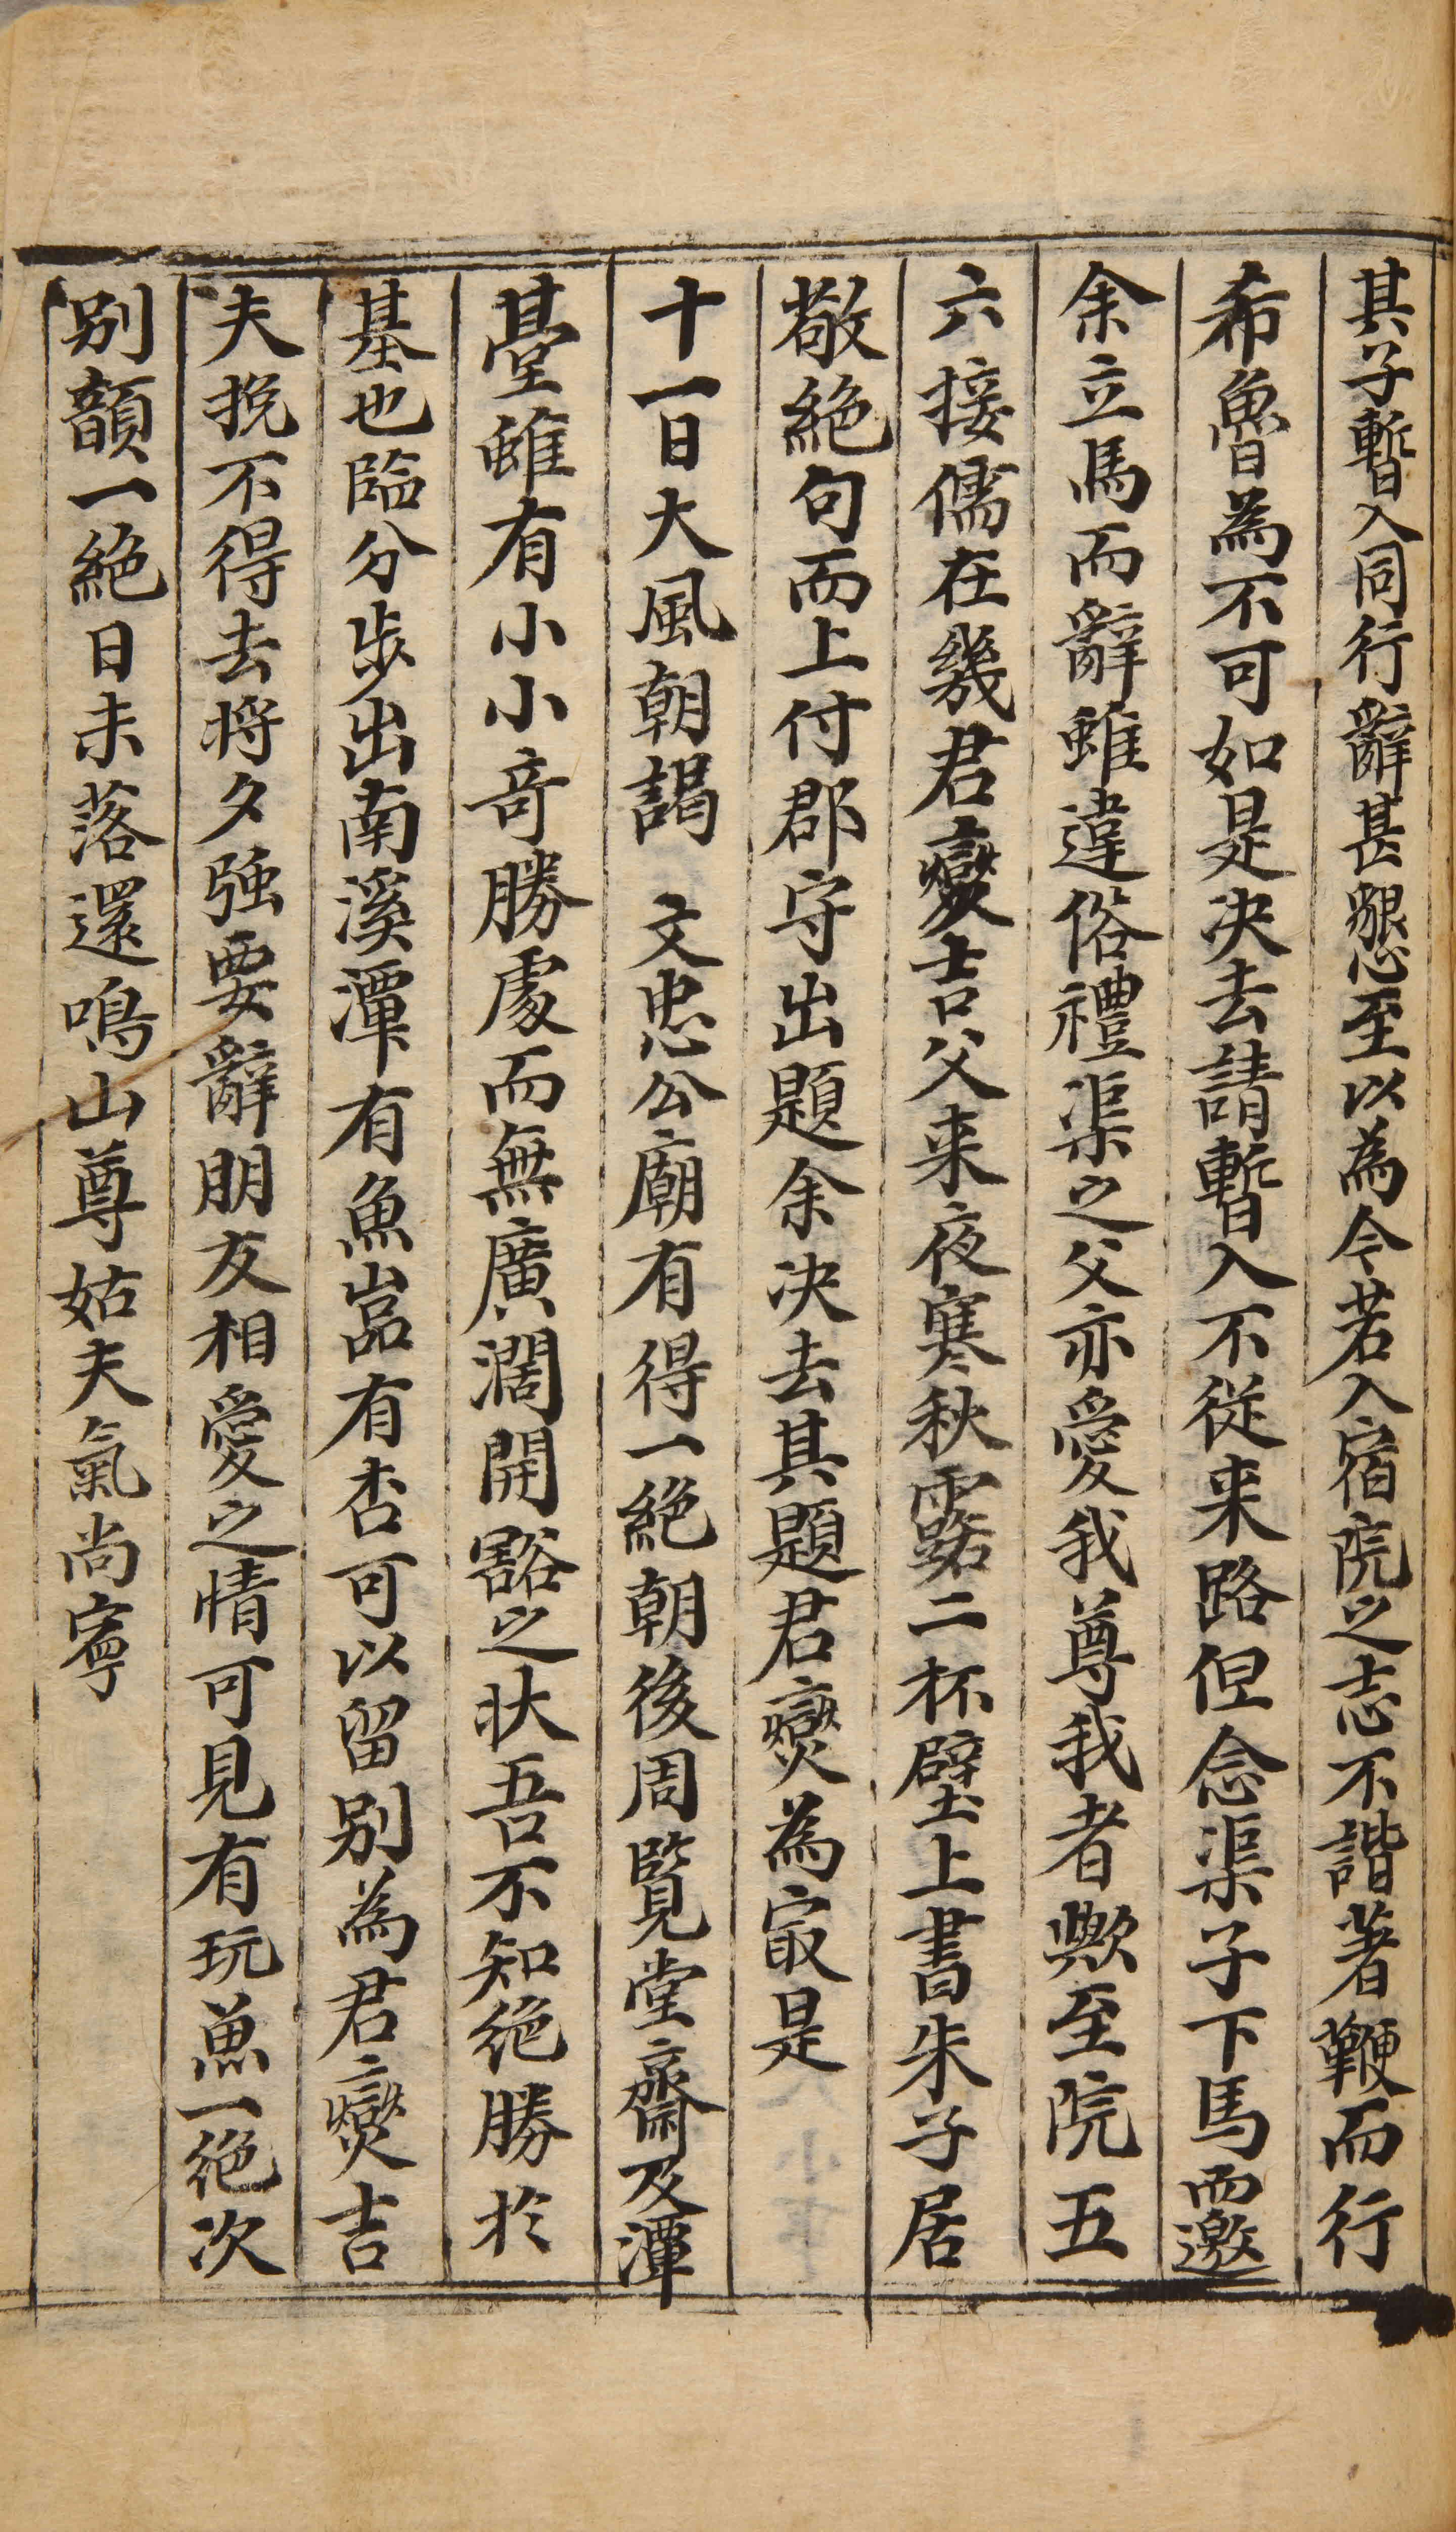 其子暫入同行辭甚懇至以為今若入宿院之志不諧著鞭而行
希魯為不可如是决去請暫入不従来路但念渠子下馬而邀
余立馬而辭雖違俗禮渠之父亦愛我尊我者歟至院五
六接儒在幾君燮吉父来夜寒秋露二杯壁上書朱子居
敬絶句而上付郡守出題余决去其題君燮為㝡是
十一日大風朝謁 文忠公廟有得一絶朝後周覧堂齋及潭
臺雖有小小竒勝處而無廣濶開豁之状吾不知絶勝扵
基也臨分步出南溪潭有魚嵓有杏可以留别為君燮吉
夫挽不得去将夕强要辭朋友相愛之情可見有玩魚一绝次
别韻一絶日未落還鳴山尊姑夫氣尚寧